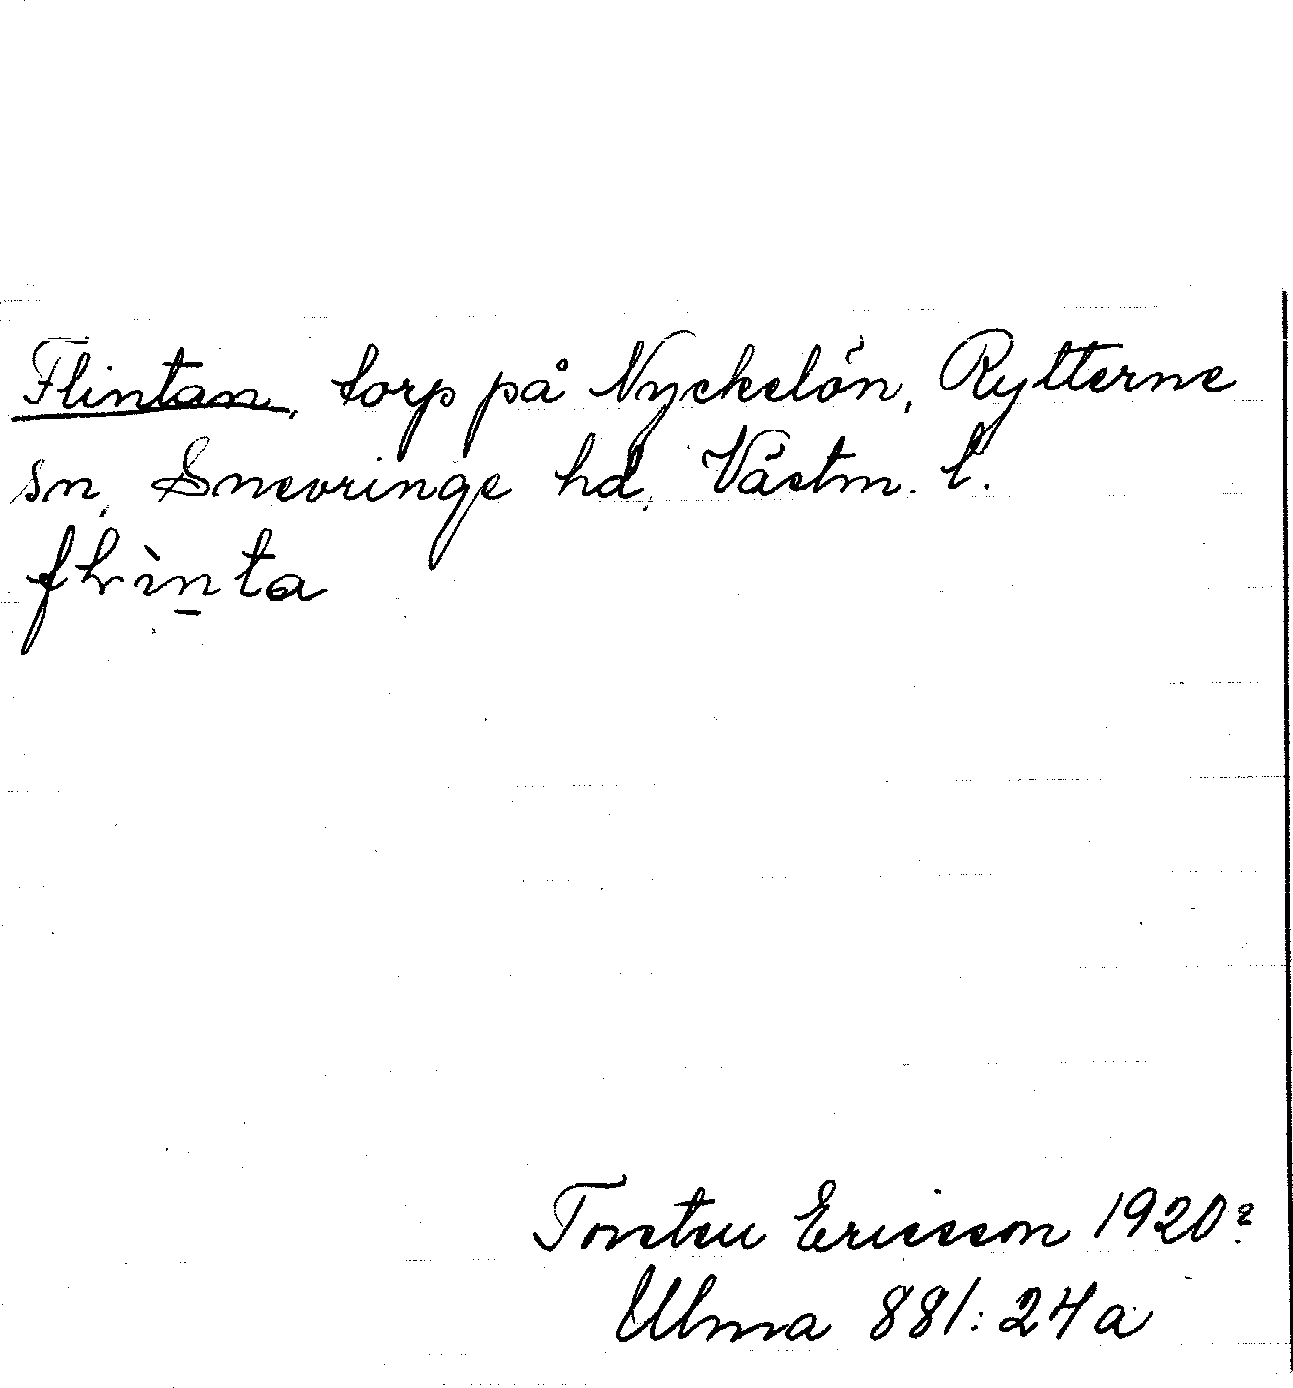 Flintan, torp på Nyckelön, Rytterne
sn, Snevringe hd, Västm. l.
flìn̠ta
Torsten Ericsson 1920?
Ulma 881:24a